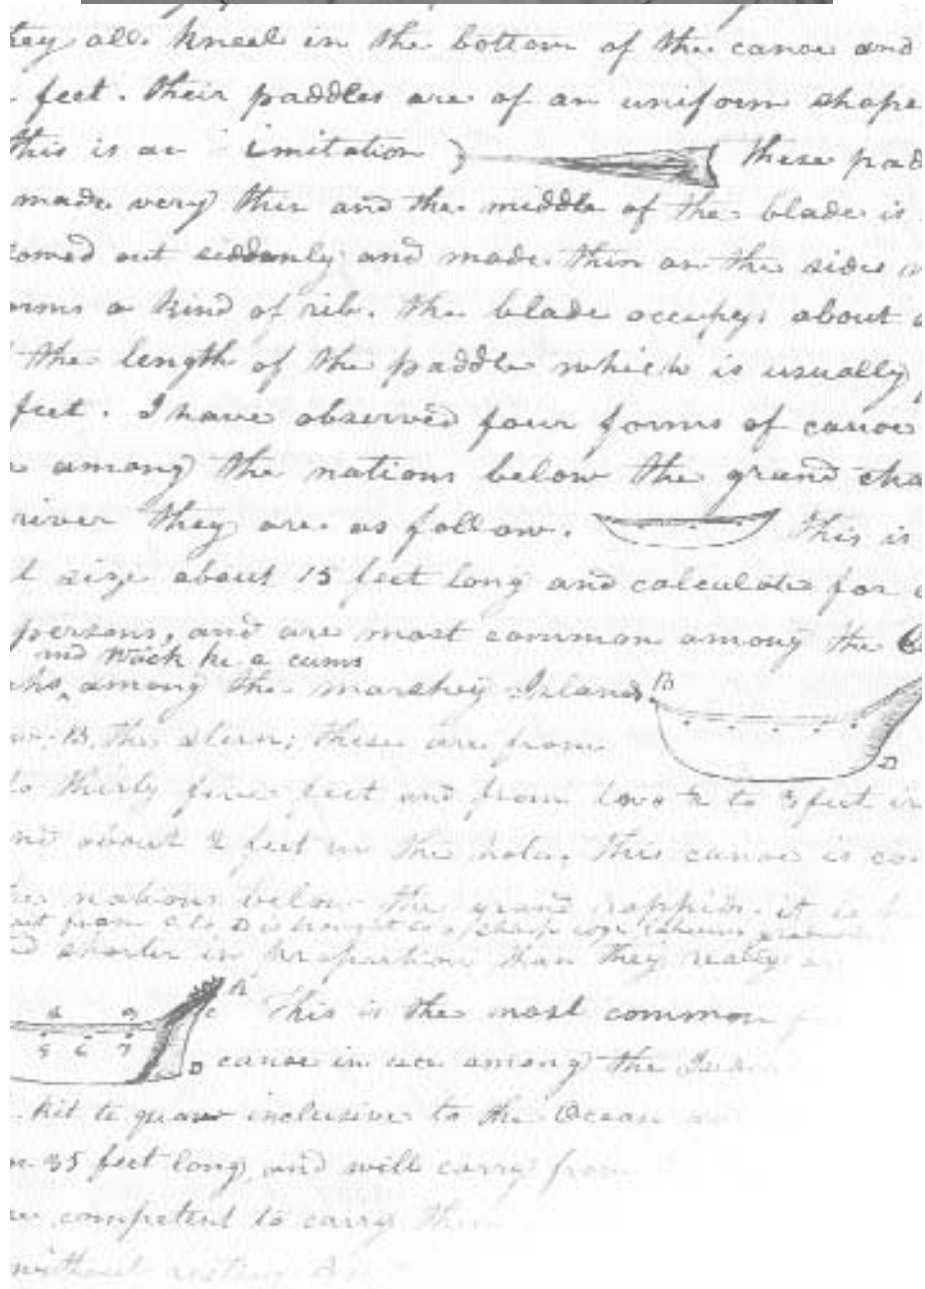 they all kneel in the bottom of the canoe and
feet. their paddles are of an uniform shape
this is an imitation these pad
made very thin and the middle of the blade is
lowed out suddenly and made thin on the sides
orms a kind of rib. the blade occupys about
the length of the paddle which is usually
feet. I have observed four forms of canoe
among the nations below the grand cha
river they are as follow. This is
t size about 15 feet long and calculate for
persons, and are most common among the
and Wack ki a cums
among the marshey Islands. B
B. the stern; these are from D
to thirty five feet and from two ½ to 3 feet in
nd about 2 feet in the hole. this canoe is co
nations below the grand rappids. it is
from C to D is brought to a sharp edge
d shorter in proportion than they really
A
2 3 C This is the most common
5 6 7 D canoe in use among the
kit te quaw inclusive to the Ocean
35 feet long, and will carry from
competent to carry
without resting